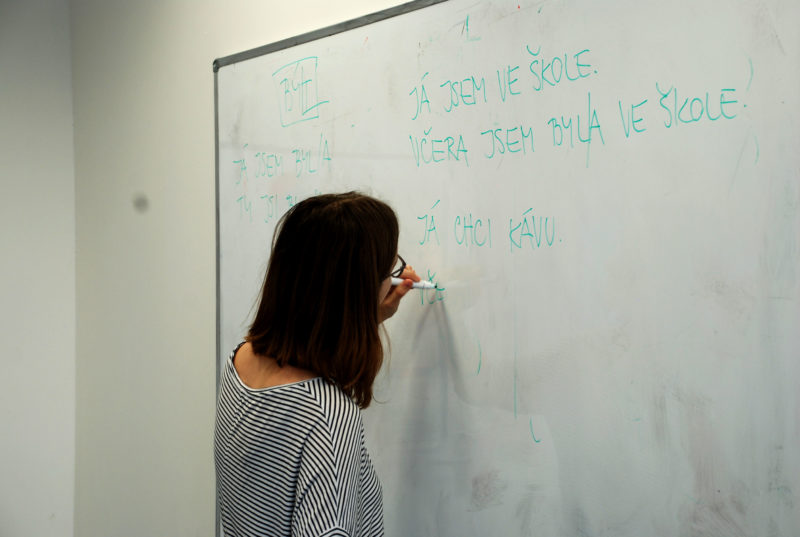 BÝT
JÁ JSEM BYL/A
TY JSI
1.
JÁ JSEM VE ŠKOLE.
VČERA JSEM BYL/A VE ŠKOLE.
JÁ CHCI KÁVU.
VČE